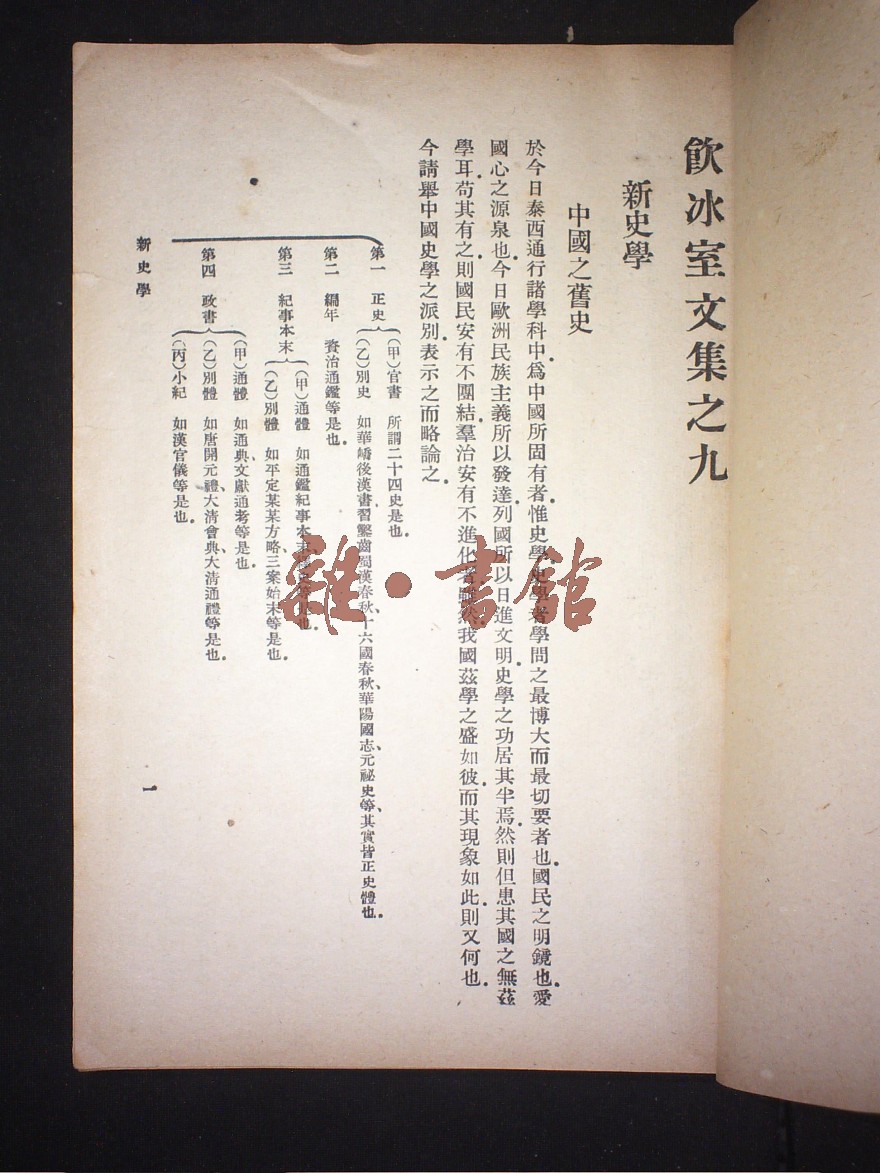 飲冰室文集之九
新史學
中國之舊史
於今日泰西通行諸學科中爲中國所固有者惟史學史學者學問之最博大而最切要者也國民之明鏡也愛
國心之源泉也今日歐洲民族主義所以發達列國所以日進文明史學之功居其半焉然則但患其國之無茲
學耳苟其有之則國民安有不團結羣治安有不進化者雖然我國茲學之盛如彼而其現象如此則又何也
今請舉中國史學之派別表示之而略論之
第一 正史
(甲)官書 所謂二十四史是也
(乙)別史 如華嶠後漢書習鑿齒蜀漢春秋、十六國春秋、華陽國志、元祕史等、其實皆正史體也
第二 編年 資治通鑑等是也
第三 紀事本末
(甲)通體 如通鑑紀事本末等是也
(乙)別體 如平定某某方略三案始末等是也
第四 政書
(甲)通體 如通典、文獻通考等是也
(乙)別體 如唐開元禮、大清會典、大清通禮等是也
(丙)小紀 如漢官儀等是也
新史學
一
雜·書館